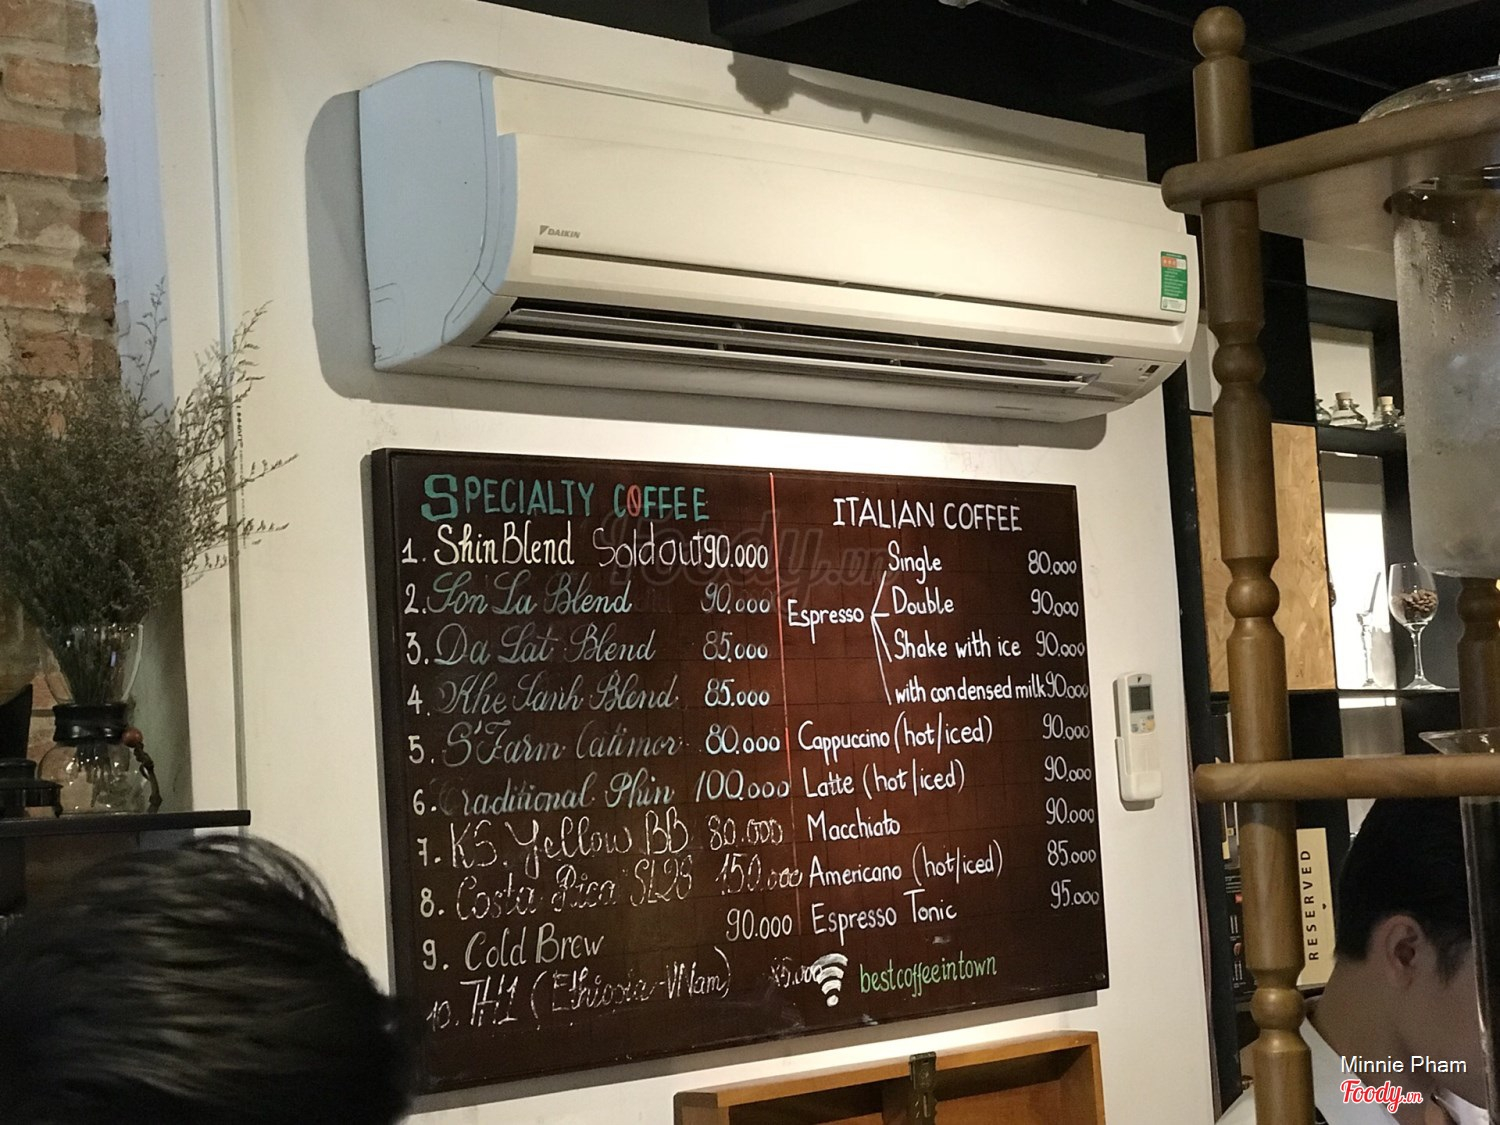 DAIKIN
SPECIALTY COFFEE
1. Shin Blend Sold out 90.000
2. Son La Blend 90.000
3. Da Lat Blend 85.000
4. Khe Sanh Blend 85.000
5. S'Farm Catimor 80.000
6. Traditional Phin 100.000
7. K5. Yellow BB 80.000
8. Costa Rica SL28 150.000
9. Cold Brew 90.000
10. TH1 (Ethiopia-VNam)
ITALIAN COFFEE
Espresso
Single 80.000
Double 90.000
Shake with ice 90.000
with condensed milk 90.000
Cappuccino (hot/iced) 90.000
Latte (hot/iced) 90.000
Macchiato 90.000
Americano (hot/iced) 85.000
Espresso Tonic 95.000
bestcoffeeintown
RESERVED
Foody.vn
Minnie Pham
Foody.vn